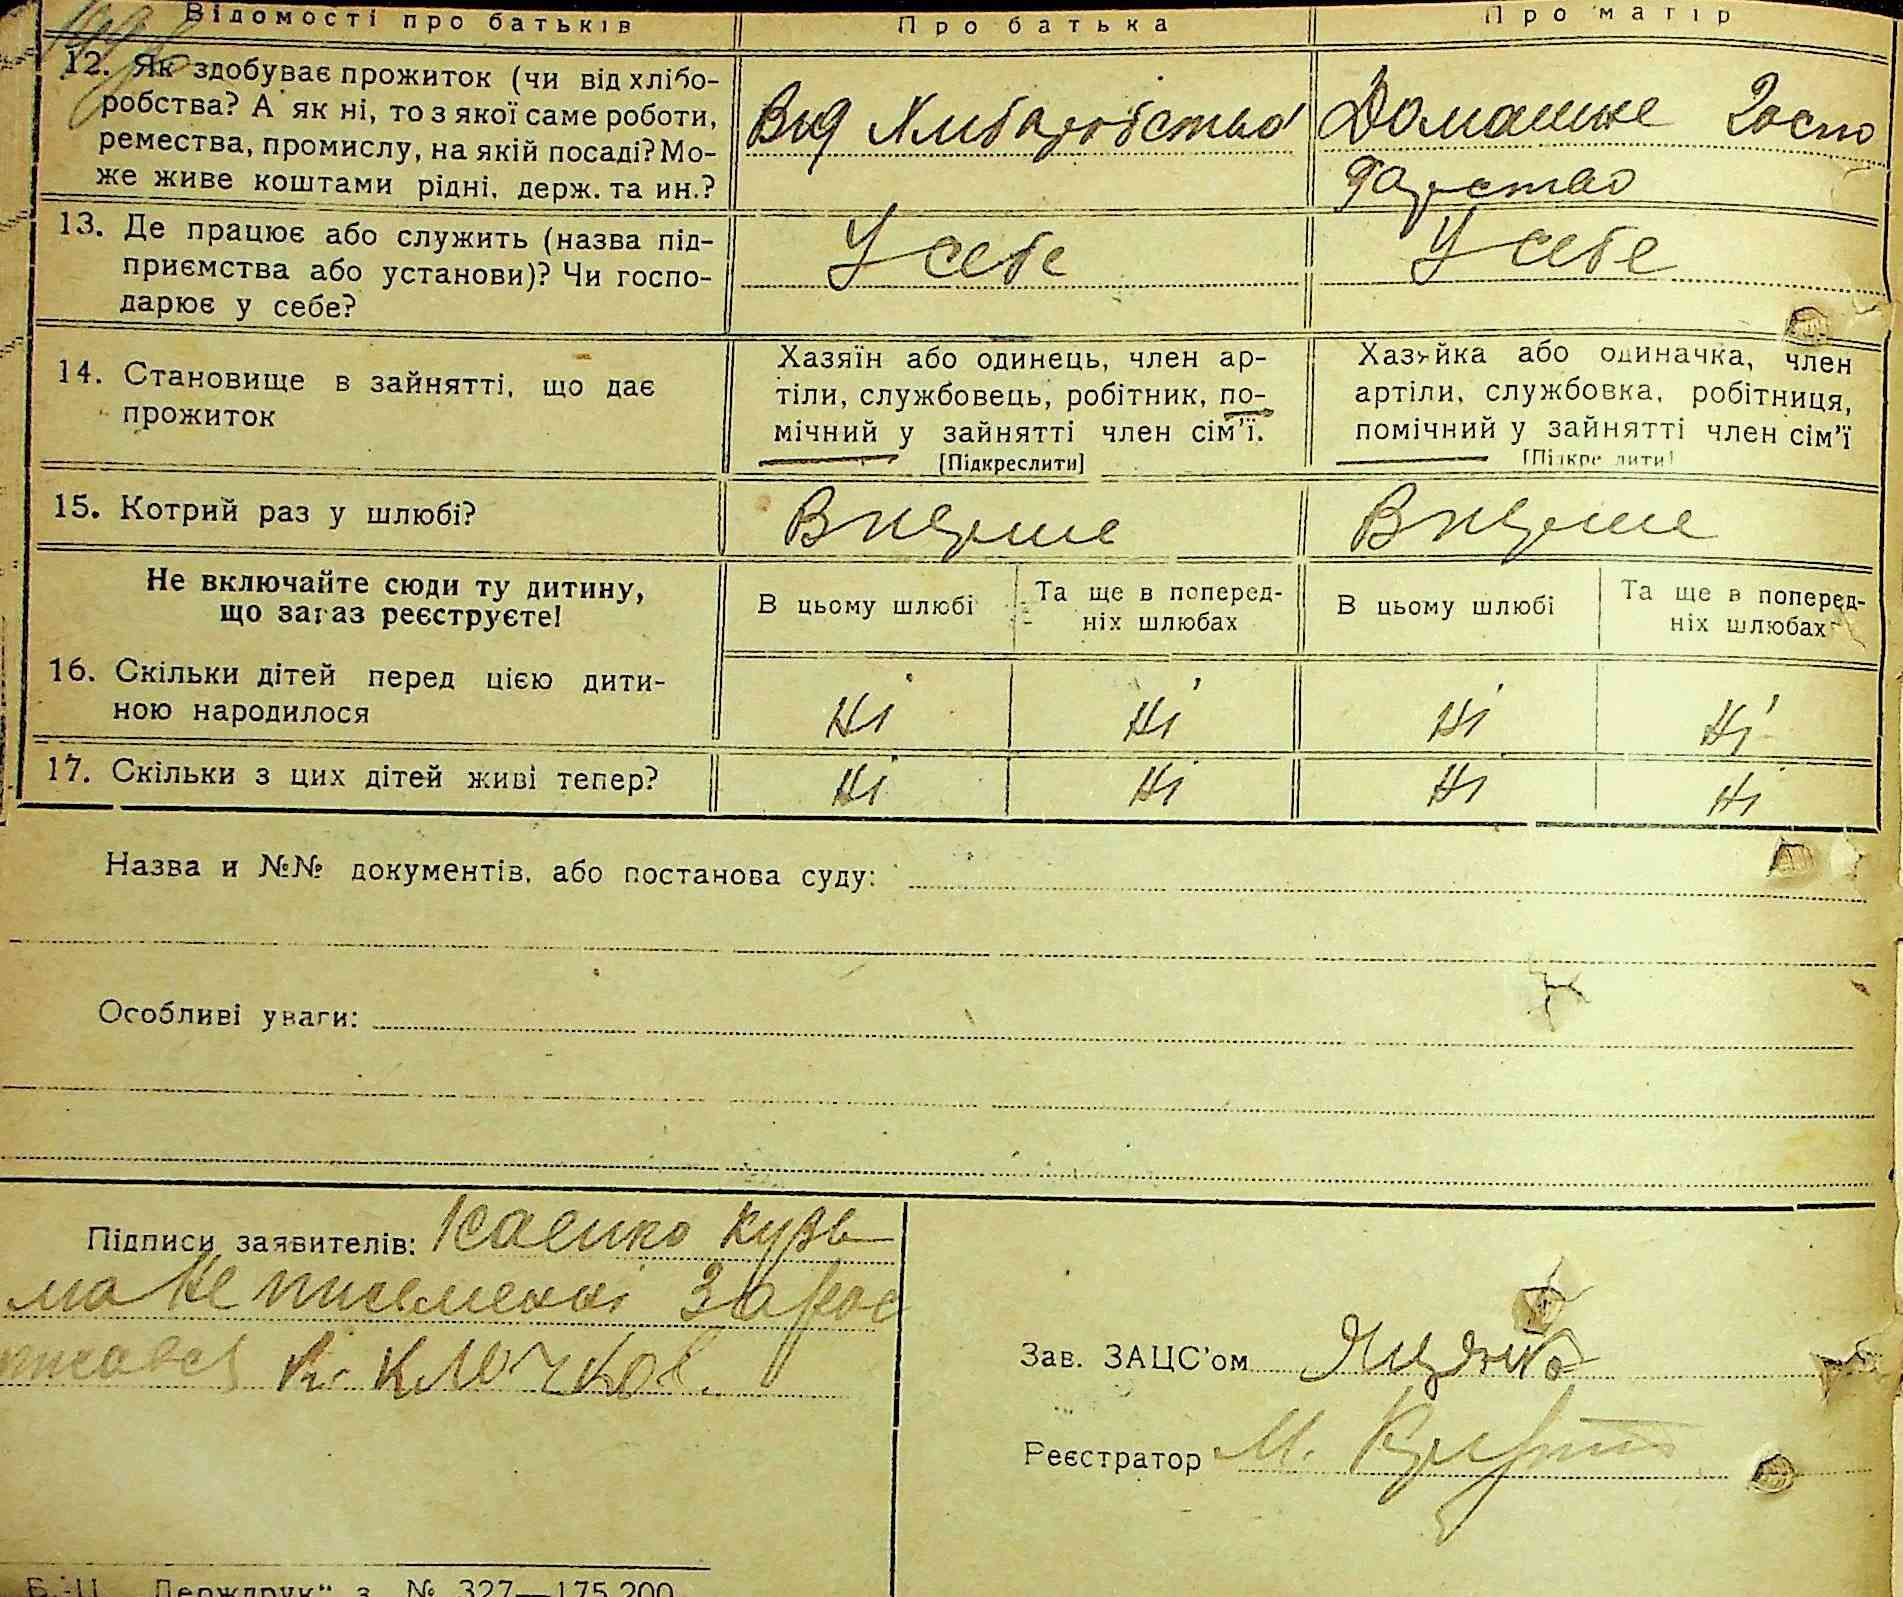 Відомості про батьків
Про батька
Про матір
12. Як здобуває прожиток (чи від хлібо-
робства? А як ні, то з якої саме роботи,
ремества, промислу, на якій посаді? Мо-
же живе коштами рідні, держ. та ин.?
Вид Хлибаробства
Домашне Госпо
дарство
13. Де працює або служить (назва під-
приємства або установи)? Чи госпо-
дарює у себе?
У себе
У себе
14. Становище в зайнятті, що дає
прожиток
Хазяїн або одинець, член ар-
тіли, службовець, робітник, по-
мічний у зайнятті член сім'ї.
[Підкреслити]
Хазяйка або одиначка, член
артіли, службовка, робітниця,
помічний у зайнятті член сім'ї
[Підкреслити]
15. Котрий раз у шлюбі?
Вперше
Вперше
Не включайте сюди ту дитину,
що зараз реєструєте!
В цьому шлюбі
Та ще в поперед-
ніх шлюбах
В цьому шлюбі
Та ще в поперед-
ніх шлюбах
16. Скільки дітей перед цією дити-
ною народилося
Ні Ні Ні Ні
17. Скільки з цих дітей живі тепер?
Ні Ні Ні Ні
Назва и №№ документів, або постанова суду:
Особливі уваги:
Підписи заявителів: Ісаенко Кузь
ма Не писменні За рос
писався К. Клочков.
Зав. ЗАЦС'ом
Реєстратор М.
„Держдрук“ з. № 327—175.200